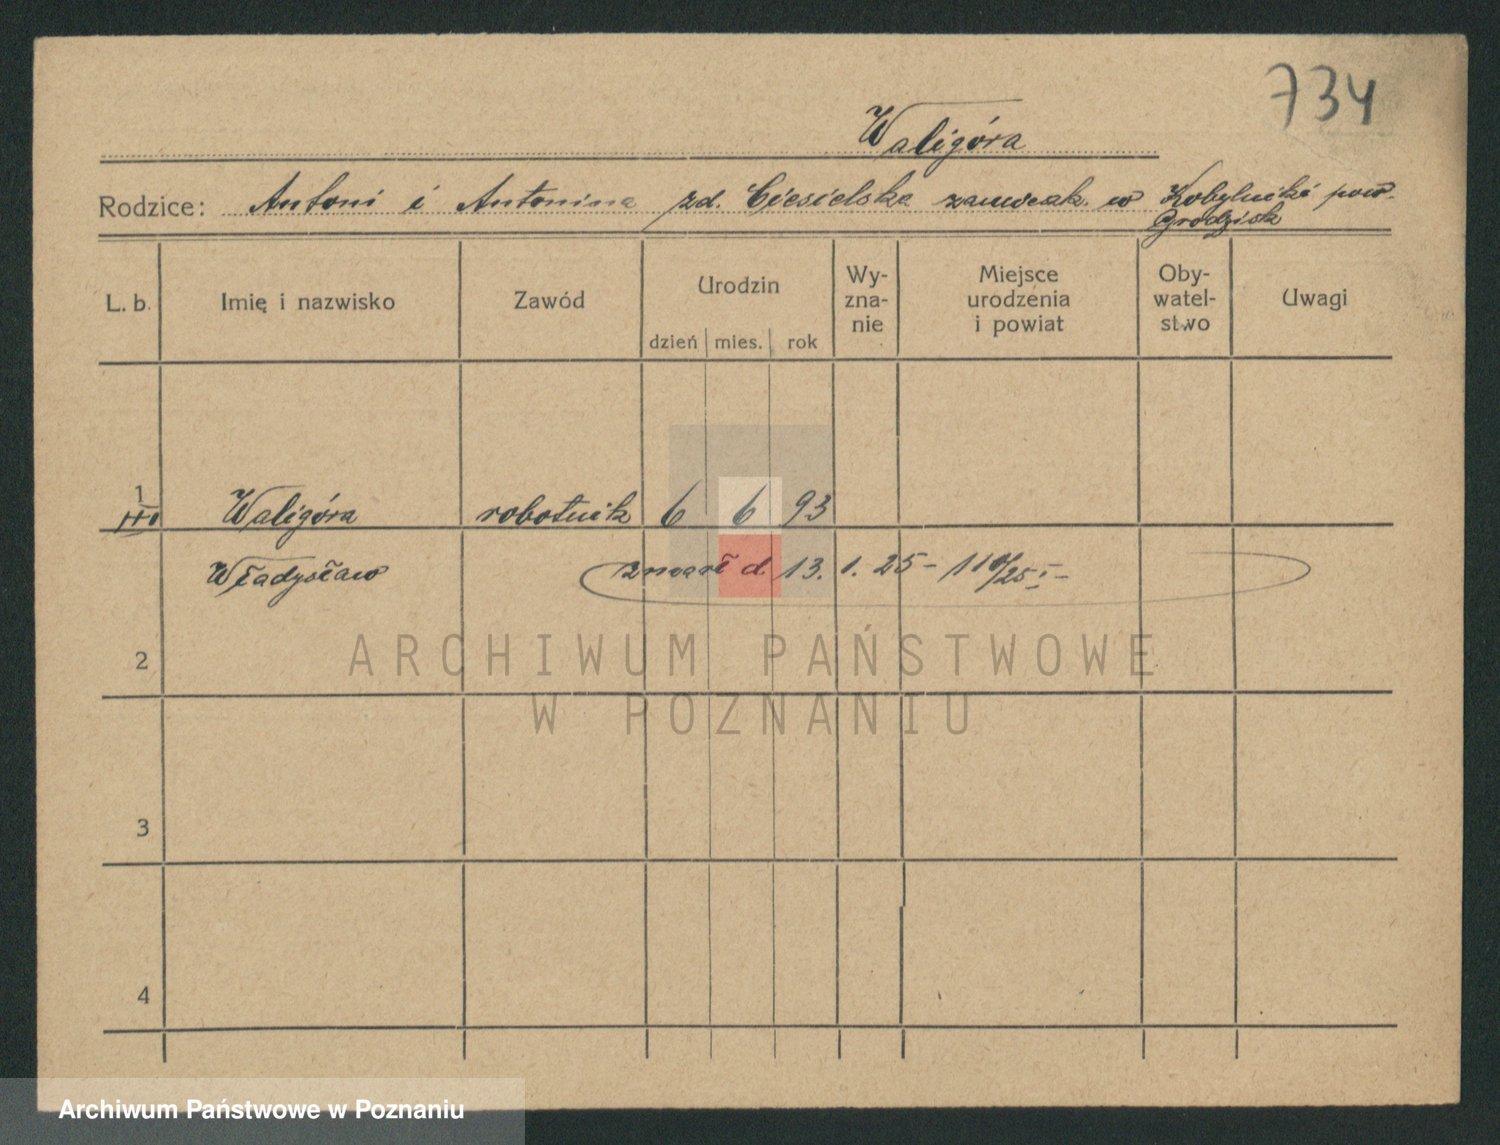 734
Waligóra
Rodzice: Antoni i Antonina zd. Ciesielska zamieszk. w Kobylniki pow.
Grodzisk
L. b. Imię i nazwisko Zawód Urodzin Wy-zna-nie Miejsce urodzenia i powiat Oby-watel-stwo Uwagi
dzień mies. rok
1 Waligóra robotnik 6 6 93
Władysław zmarł d. 13. 1. 25 -
2
ARCHIWUM PAŃSTWOWE
W POZNANIU
3
4
Archiwum Państwowe w Poznaniu